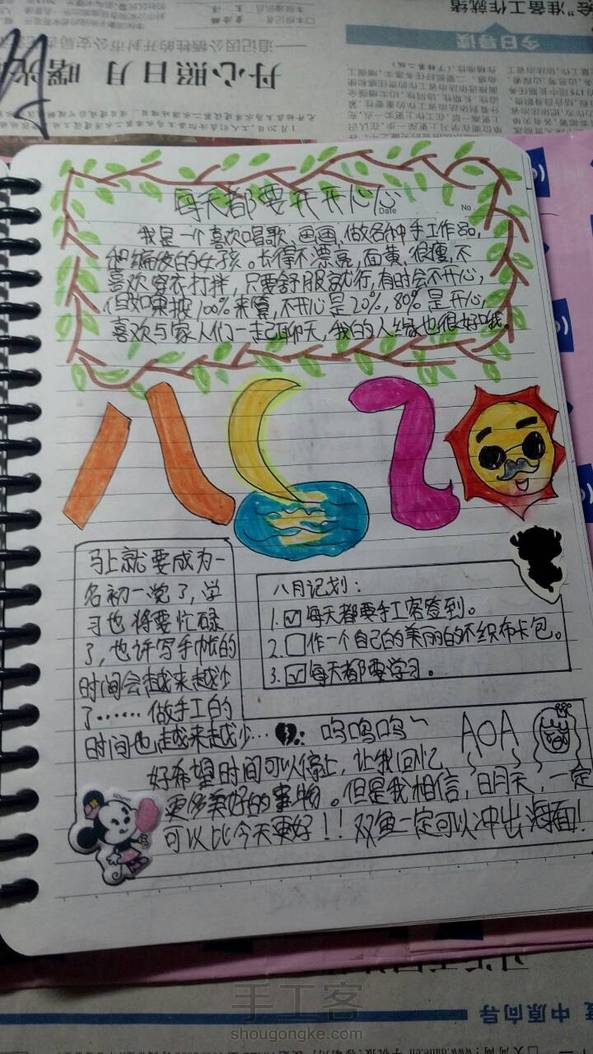 今日导读
会"准备工作就绪
丹心照日月 曙光
每天都要开开心心
Date
No
我是一个喜欢唱歌,画画,做各种手工作品,
和的女孩。长得不漂亮,面黄,很瘦,不
喜欢穿衣打拌,只要舒服就行,有时会不开心,
但如果按100%来算,不开心是20%,80%是开心,
喜欢与家人们一起聊天,我的人缘也很好哦。
八
马上就要成为一
名初一党了,学
习也将要忙碌
了,也许写手帐的
时间会越来越少
了……做手工的
时间也越来越少… 呜呜呜~ AOA
好希望时间可以停止,让我回忆
更多美好的事物。但是我相信,明天,一定
可以比今天更好!!双鱼一定可以冲出海面!
八月记划:
1.☑每天都要手工客签到。
2.☐作一个自己的美丽的不织布卡包。
3.☑每天都要学习。
手工客
shougongke.com
中原向导